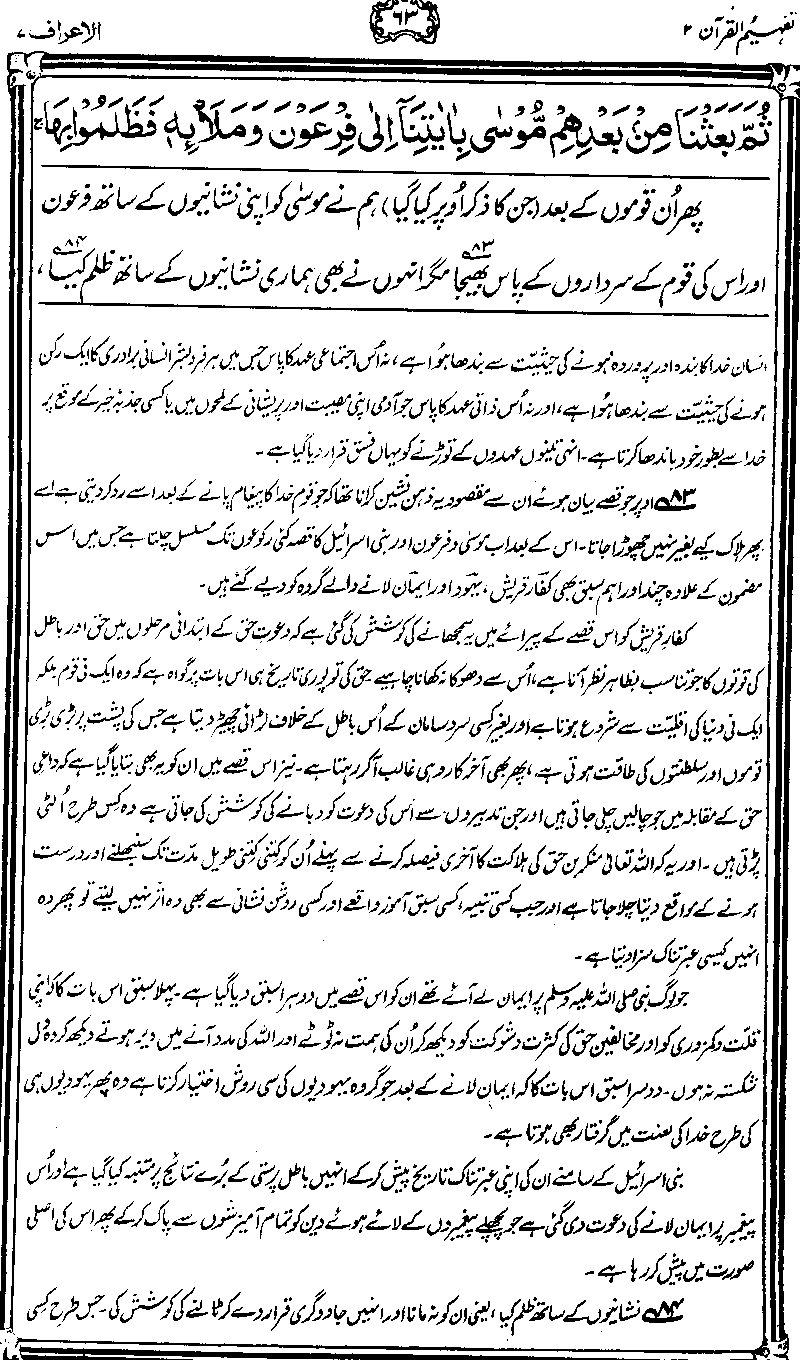 تفہیم القرآن ۲
۶۳
الاعراف ۷
ثُمَّ بَعَثْنَا مِنْۢ بَعْدِهِمْ مُّوْسٰى بِاٰيٰتِنَاۤ اِلٰى فِرْعَوْنَ وَمَلَا۟ئِهٖ فَظَلَمُوْا بِهَاۚ
پھر اُن قوموں کے بعد (جن کا ذکر اُوپر کیا گیا) ہم نے موسیٰ کو اپنی نشانیوں کے ساتھ فرعون
اور اس کی قوم کے سرداروں کے پاس بھیجا۸۳ مگر انہوں نے بھی ہماری نشانیوں کے ساتھ ظلم کیا۸۴،
انسان خدا کا بندہ اور پروردہ ہونے کی حیثیّت سے بندھا ہُوا ہے، نہ اُس اجتماعی عہد کا پاس جس میں ہر فرد بشر انسانی برادری کا ایک رکن
ہونے کی حیثیّت سے بندھا ہُوا ہے، اور نہ اُس ذاتی عہد کا پاس جو آدمی اپنی مصیبت اور پریشانی کے لمحوں میں یا کسی جذبۂ خیر کے موقع پر
خدا سے بطور خود باندھا کرتا ہے۔ انہی تینوں عہدوں کے توڑنے کو یہاں فسق قرار دیا گیا ہے۔
۸۳ اوپر جو قصے بیان ہوئے ان سے مقصود یہ ذہن نشین کرانا تھا کہ جو قوم خدا کا پیغام پانے کے بعد اسے رد کر دیتی ہے اسے
پھر ہلاک کیے بغیر نہیں چھوڑا جاتا۔ اس کے بعد اب موسیٰ و فرعون اور بنی اسرائیل کا قصہ کئی رکوعوں تک مسلسل چلتا ہے جس میں اس
مضمون کے علاوہ چند اور اہم سبق بھی کفّار قریش، یہود اور ایمان لانے والے گروہ کو دیے گئے ہیں۔
کفار قریش کو اس قصے کے پیرائے میں یہ سمجھانے کی کوشش کی گئی ہے کہ دعوتِ حق کے ابتدائی مرحلوں میں حق اور باطل
کی قوتوں کا جو تناسب بظاہر نظر آتا ہے، اُس سے دھوکا نہ کھانا چاہیے حق کی تو پوری تاریخ ہی اس بات پر گواہ ہے کہ وہ ایک فی قوم بلکہ
ایک فی دنیا کی اقلیّت سے شروع ہوتا ہے اور بغیر کسی سروسامان کے اُس باطل کے خلاف لڑائی چھیڑ دیتا ہے جس کی پشت پر بڑی بڑی
قوموں اور سلطنتوں کی طاقت ہوتی ہے، پھر بھی آخر کار وہی غالب آ کر رہتا ہے۔ نیز اس قصے میں ان کو یہ بھی بتایا گیا ہے کہ داعی
حق کے مقابلہ میں جو چالیں چلی جاتی ہیں اور جن تدبیروں سے اس کی دعوت کو دبانے کی کوشش کی جاتی ہے وہ کس طرح اُلٹی
پڑتی ہیں۔ اور یہ کہ اللہ تعالیٰ منکرینِ حق کی ہلاکت کا آخری فیصلہ کرنے سے پہلے اُن کو کتنی کتنی طویل مدّت تک سنبھلنے اور درست
ہونے کے مواقع دیتا چلا جاتا ہے اور جب کسی تنبیہ، کسی سبق آموز واقعے اور کسی روشن نشانی سے بھی وہ اثر نہیں لیتے تو پھر وہ
انہیں کیسی عبرتناک سزا دیتا ہے۔
جو لوگ نبی صلی اللہ علیہ وسلم پر ایمان لے آئے تھے ان کو اس قصے میں دوہرا سبق دیا گیا ہے۔ پہلا سبق اس بات کا کہ اپنی
قلّت و کمزوری کو اور مخالفینِ حق کی کثرت و شوکت کو دیکھ کر اُن کی ہمت نہ ٹوٹے اور اللہ کی مدد آنے میں دیر ہوتے دیکھ کر وہ دل
شکستہ نہ ہوں۔ دوسرا سبق اس بات کا کہ ایمان لانے کے بعد جو گروہ یہودیوں کی سی روش اختیار کرتا ہے وہ پھر یہودیوں ہی
کی طرح خدا کی لعنت میں گرفتار بھی ہوتا ہے۔
بنی اسرائیل کے سامنے ان کی اپنی عبرتناک تاریخ پیش کر کے انہیں باطل پرستی کے بُرے نتائج پر متنبہ کیا گیا ہے اور اُس
پیغمبر پر ایمان لانے کی دعوت دی گئی ہے جو پچھلے پیغمبروں کے لائے ہوئے دین کو تمام آمیزشوں سے پاک کر کے پھر اس کی اصلی
صورت میں پیش کر رہا ہے۔
۸۴ نشانیوں کے ساتھ ظلم کیا، یعنی ان کو نہ مانا اور انہیں جادوگری قرار دے کر ٹالنے کی کوشش کی۔ جس طرح کسی